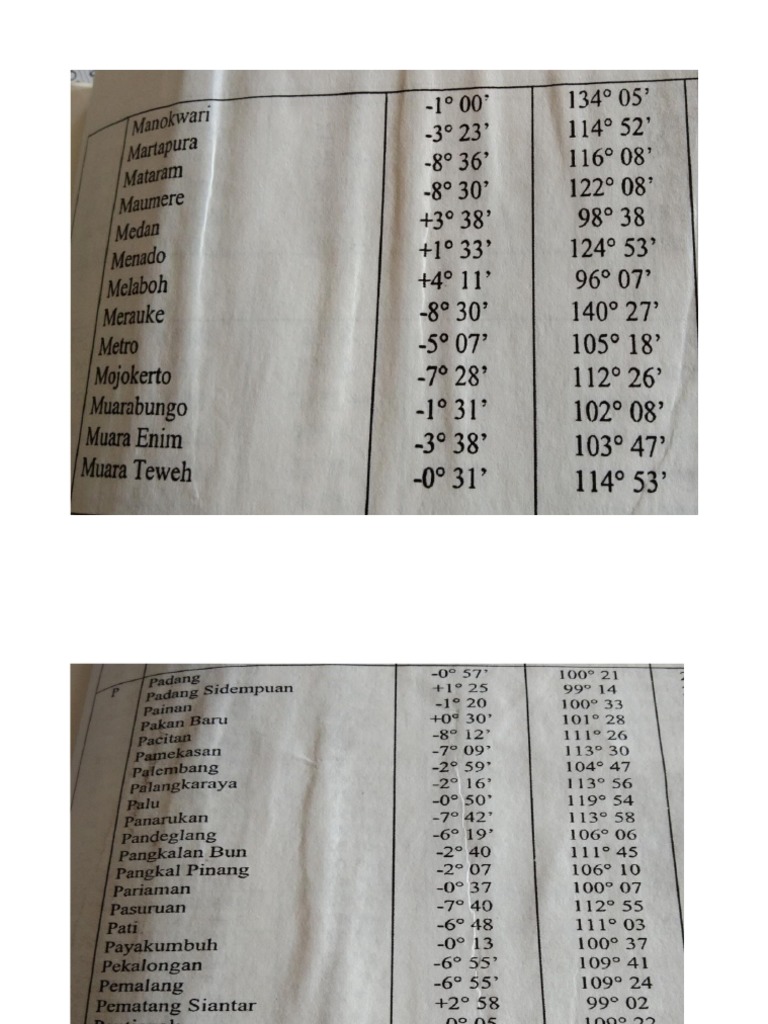 Manokwari -1° 00’ 134° 05’
Martapura -3° 23’ 114° 52’
Mataram -8° 36’ 116° 08’
Maumere -8° 30’ 122° 08’
Medan +3° 38’ 98° 38
Menado +1° 33’ 124° 53’
Melaboh +4° 11’ 96° 07’
Merauke -8° 30’ 140° 27’
Metro -5° 07’ 105° 18’
Mojokerto -7° 28’ 112° 26’
Muarabungo -1° 31’ 102° 08’
Muara Enim -3° 38’ 103° 47’
Muara Teweh -0° 31’ 114° 53’
P Padang -0° 57’ 100° 21
Padang Sidempuan +1° 25 99° 14
Painan -1° 20 100° 33
Pakan Baru +0° 30’ 101° 28
Pacitan -8° 12’ 111° 26
Pamekasan -7° 09’ 113° 30
Palembang -2° 59’ 104° 47
Palangkaraya -2° 16’ 113° 56
Palu -0° 50’ 119° 54
Panarukan -7° 42’ 113° 58
Pandeglang -6° 19’ 106° 06
Pangkalan Bun -2° 40 111° 45
Pangkal Pinang -2° 07 106° 10
Pariaman -0° 37 100° 07
Pasuruan -7° 40 112° 55
Pati -6° 48 111° 03
Payakumbuh -0° 13 100° 37
Pekalongan -6° 55’ 109° 41
Pemalang -6° 55’ 109° 24
Pematang Siantar +2° 58 99° 02